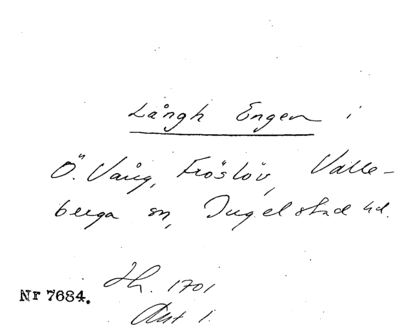 Långh Engen i
Ö. Vång, Fröslöv, Valle-
berga sn, Ingelstad hd.
Jh. 1701
Nr 7684.
Akt 1.